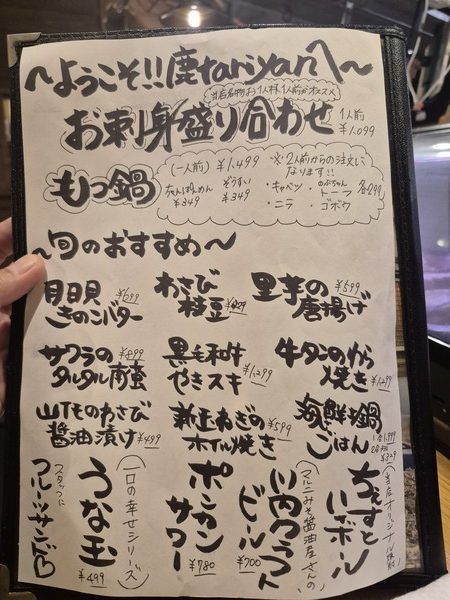 ～ようこそ!!鹿tariyanへ～
お1人様1人前がオススメ
お刺身盛り合わせ 1人前 ¥1,099
もつ鍋 (一人前) ¥1,499
ちゃんぽんめん ¥349
ぞうすい ¥349
※2人前からの注文になります!!
・キャベツ ・のぶちゃんトーフ 各299
・ニラ ・ゴボウ
～旬のおすすめ～
月日貝 ¥699
きのこバター
わさび
枝豆
里芋の ¥599
唐揚げ
サワラの ¥899
タルタル南蛮
黒毛和牛
やきスキ ¥1,299
牛タンの
焼き ¥1,299
山イモのわさび
醤油漬け ¥499
新玉ねぎの ¥599
ホイル焼き
海鮮土鍋
ごはん
(当店オリジナル焼酎)
ちぇすと
ボール
(マルニみそ醤油屋さんの)
ビール ¥700
ポンカン
サワー ¥780
(一口の幸せシリーズ)
うな玉 ¥499
スタッフに
フルーツサンド♡